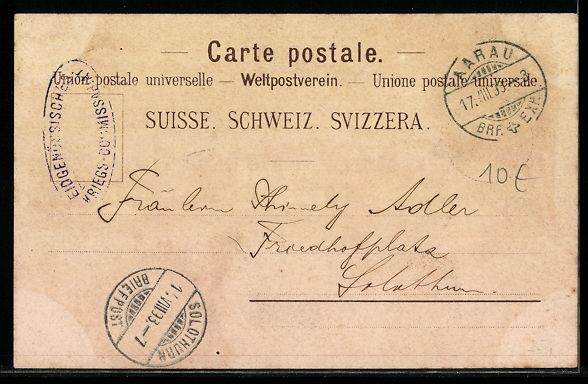 Carte postale.
Union postale universelle — Weltpostverein. — Unione postale universale.
SUISSE. SCHWEIZ. SVIZZERA.
EIDGENÖSSISCHES
KRIEGS-COMMISSARIAT
AARAU
17.VIII.93
BRF. EXP.
10 €
Fräulein Adler
Friedhofplatz
Solothurn.
SOLOTHURN
VIII.93-7
BRIEFPOST